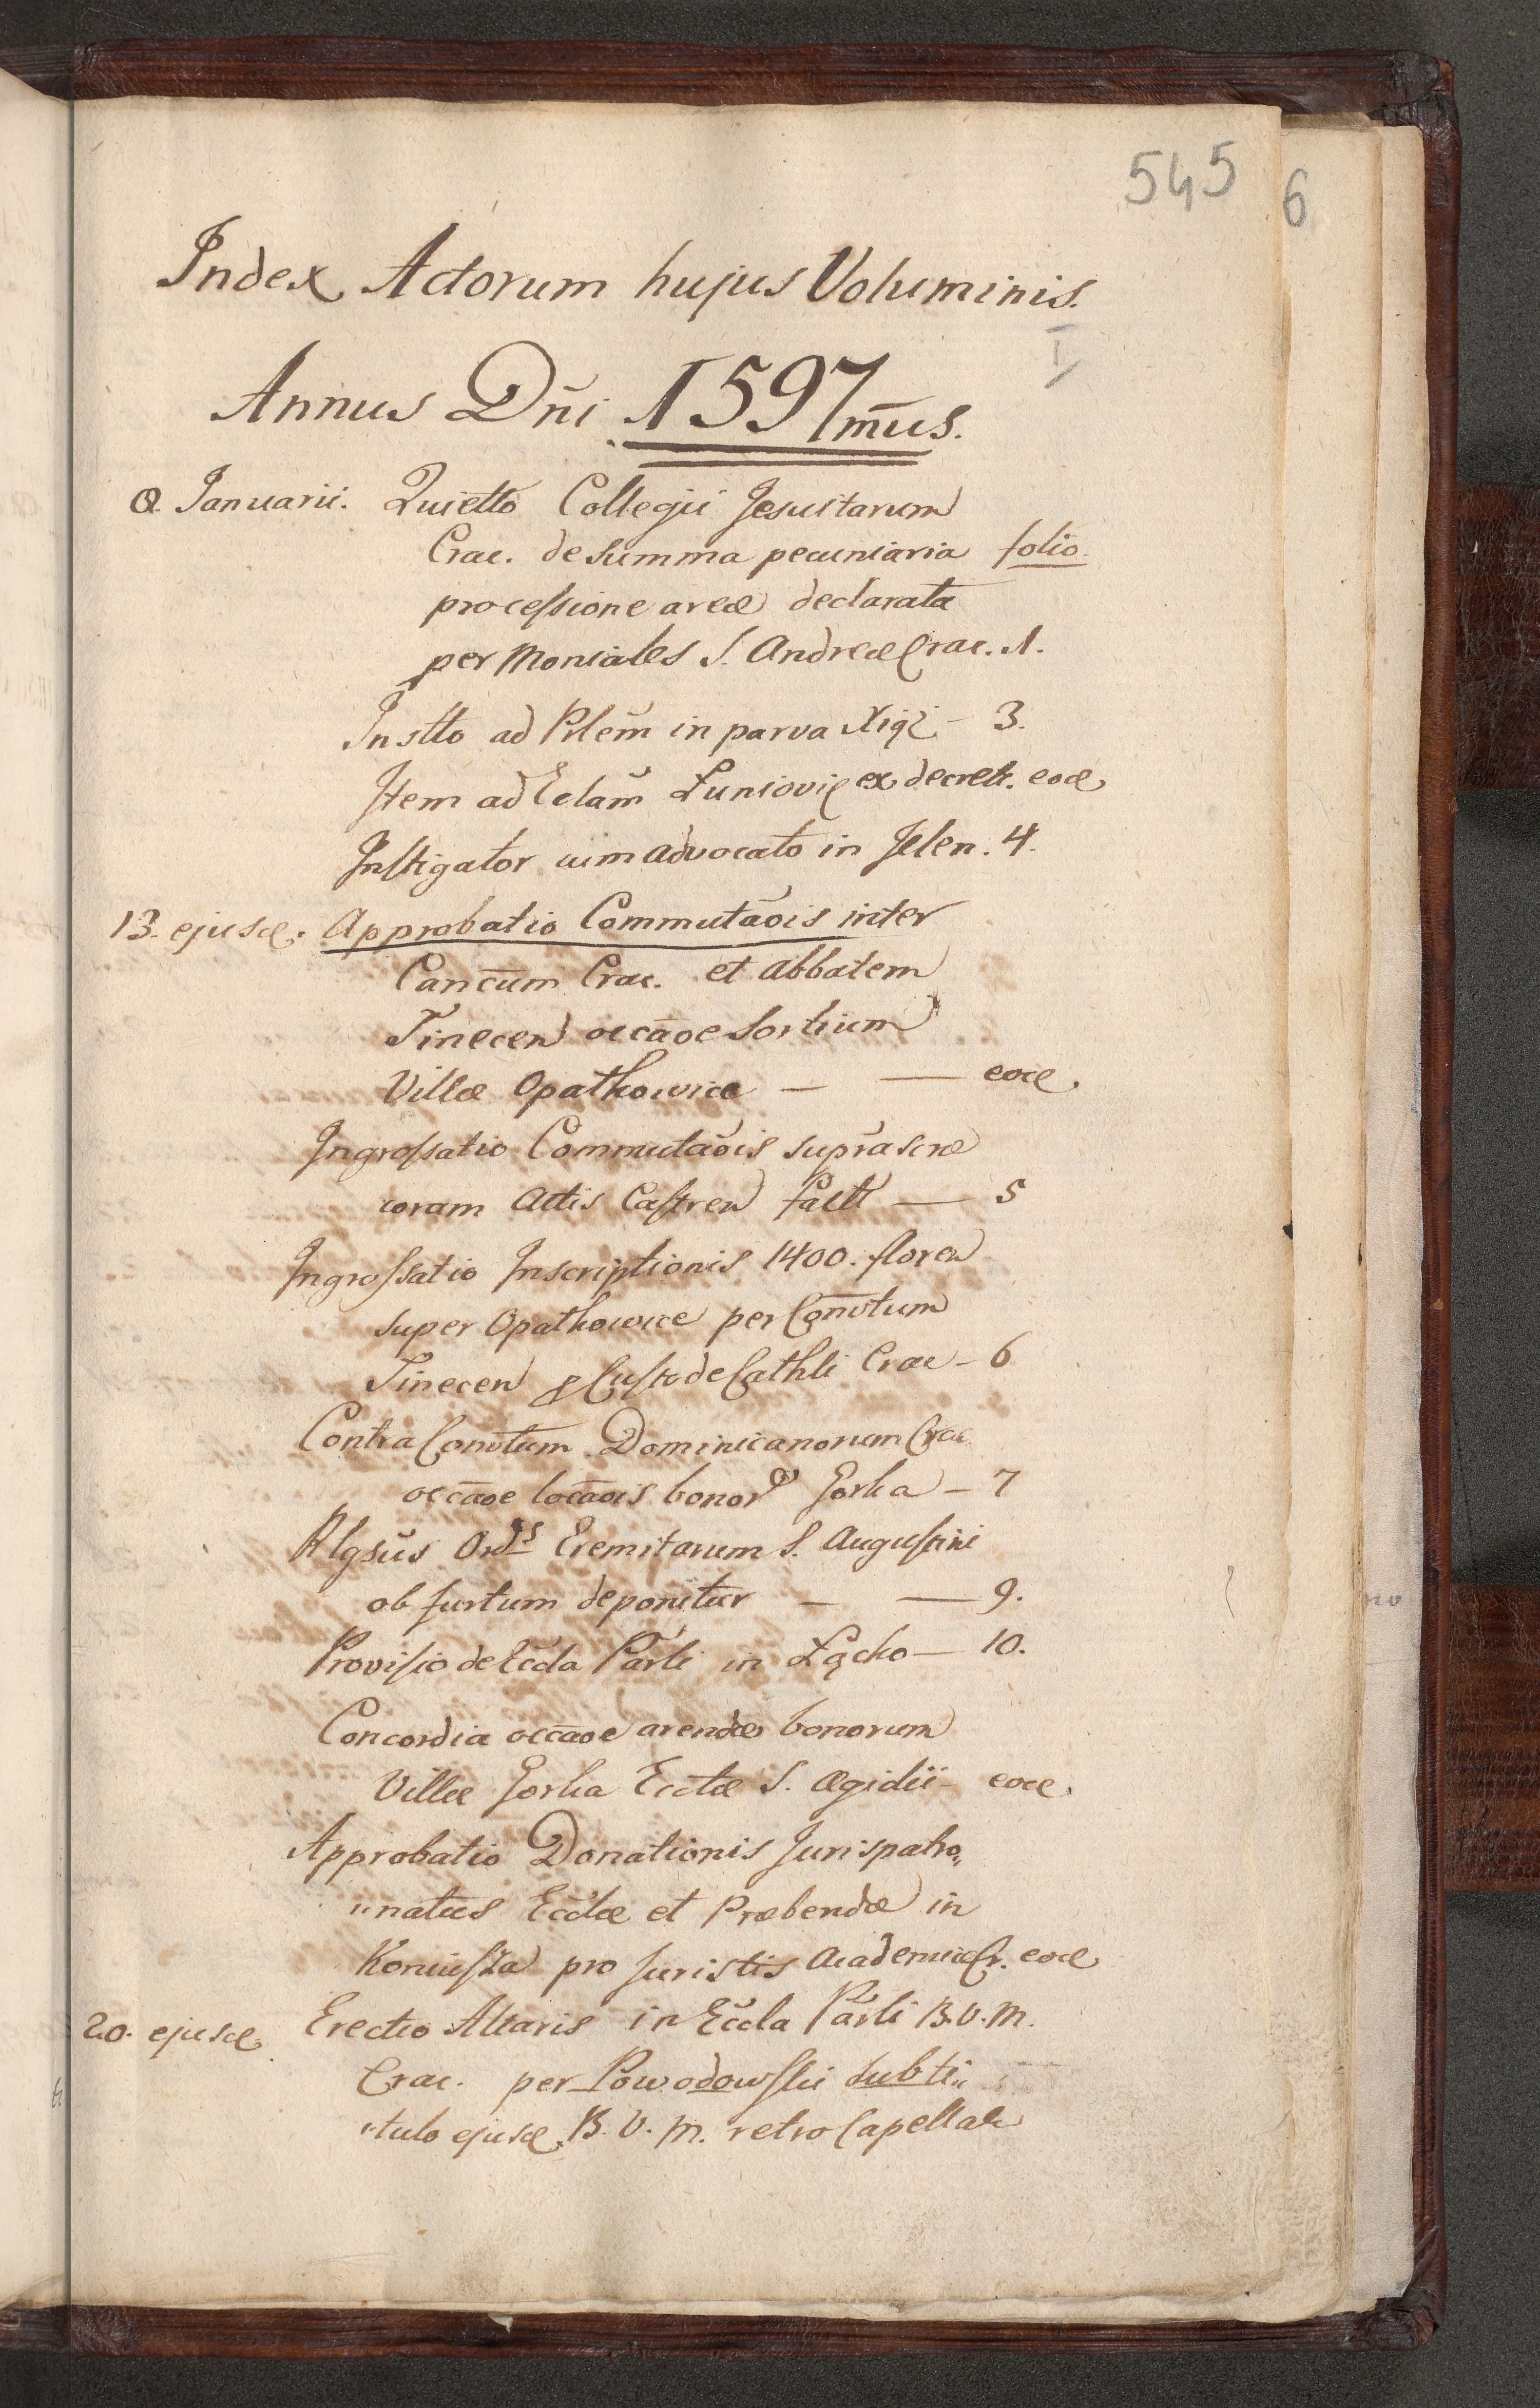 545
6
Index Actorum hujus Voluminis.
I
Annus Dñi 1597mus.
a Januarii. Quietto Collegii Jesuitarum
Crac. de Summa pecuniaria folio
pro cessione areæ declarata
per Moniales S. Andreæ Crac. 1.
Instto ad Plem in parva Xigz - 3.
Item ad Eclam Luniovi ex decreti. eod
Instigator cum advocato in Jelen. 4.
13. ejusd. Approbatio Commutaõis inter
Cancum Crac. et Abbatem
Tinecen occãoe Sortium
Villæ Opatkowice — — eod.
Ingrossatio Commutaõis suprascræ
coram Actis Castren fact — 5
Ingrossatio Inscriptionis 1400. floren
super Opatkowice per Convtum
Tinecen p Custode Cathli Crac - 6
Contra Convtum Dominicanorum Crac
occãoe locãois bonor Gorka - 7
Rlgsus Ords Eremitarum S. Augustini
ob furtum deponitur — — 9.
Provisio de Eccla Parli in Łącko — 10.
Concordia occãoe arendæ bonorum
Villæ Gorka Ecclæ S. Ægidii - eod.
Approbatio Donationis Jurispatro„
„natus Ecclæ et Præbendæ in
Koniusza pro Juristis Academiæ Cr. eod
20. ejusd Erectio Altaris in Eccla Parli B.V.M.
Crac. per Powodowski sub ti„
„tulo ejusd. B. V. M. retro Capellale